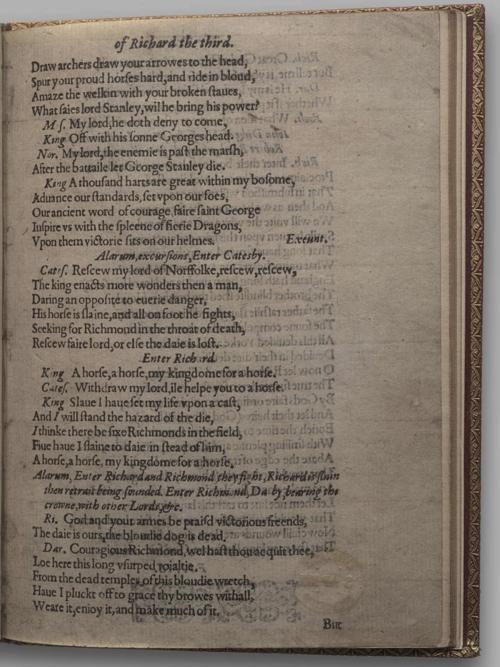 of Richard the third.
Draw archers draw your arrowes to the head,
Spur your proud horses hard, and ride in bloud,
Amaze the welkin with your broken staues,
What saies lord Stanley, wil he bring his power?
Mes. My lord, he doth deny to come,
King Off with his sonne Georges head.
Nor. My lord, the enemie is past the marsh,
After the battaile let George Stanley die.
King A thousand harts are great within my bosome,
Aduance our standards, set vpon our foes,
Our ancient word of courage, faire saint George
Inspire vs with the spleene of fierie Dragons,
Vpon them victorie sits on our helmes. Exeunt.
Alarum, excursions, Enter Catesby.
Cates. Rescew my lord of Norffolke, rescew, rescew,
The king enacts more wonders then a man,
Daring an opposite to euerie danger,
His horse is slaine, and all on foot he fights,
Seeking for Richmond in the throat of death,
Rescew faire lord, or else the daie is lost.
Enter Richard.
King A horse, a horse, my kingdome for a horse.
Cates. Withdraw my lord, ile helpe you to a horse.
King Slaue I haue set my life vpon a cast,
And I will stand the hazard of the die,
I thinke there be sixe Richmonds in the field,
Fiue haue I slaine to daie in stead of him,
A horse, a horse, my kingdome for a horse.
Alarum, Enter Richard and Richmond, they fight, Richard is slain
then retrait being sounded. Enter Richmond, Darby bearing the
crowne, with other Lords, &c.
Ri. God and your armes be praisd victorious freends,
The daie is ours, the bloudie dog is dead.
Dar. Couragious Richmond, wel hast thou acquit thee,
Loe here this long vsurped roialtie,
From the dead temples of this bloudie wretch,
Haue I pluckt off to grace thy browes withall,
Weare it, enioy it, and make much of it.
But